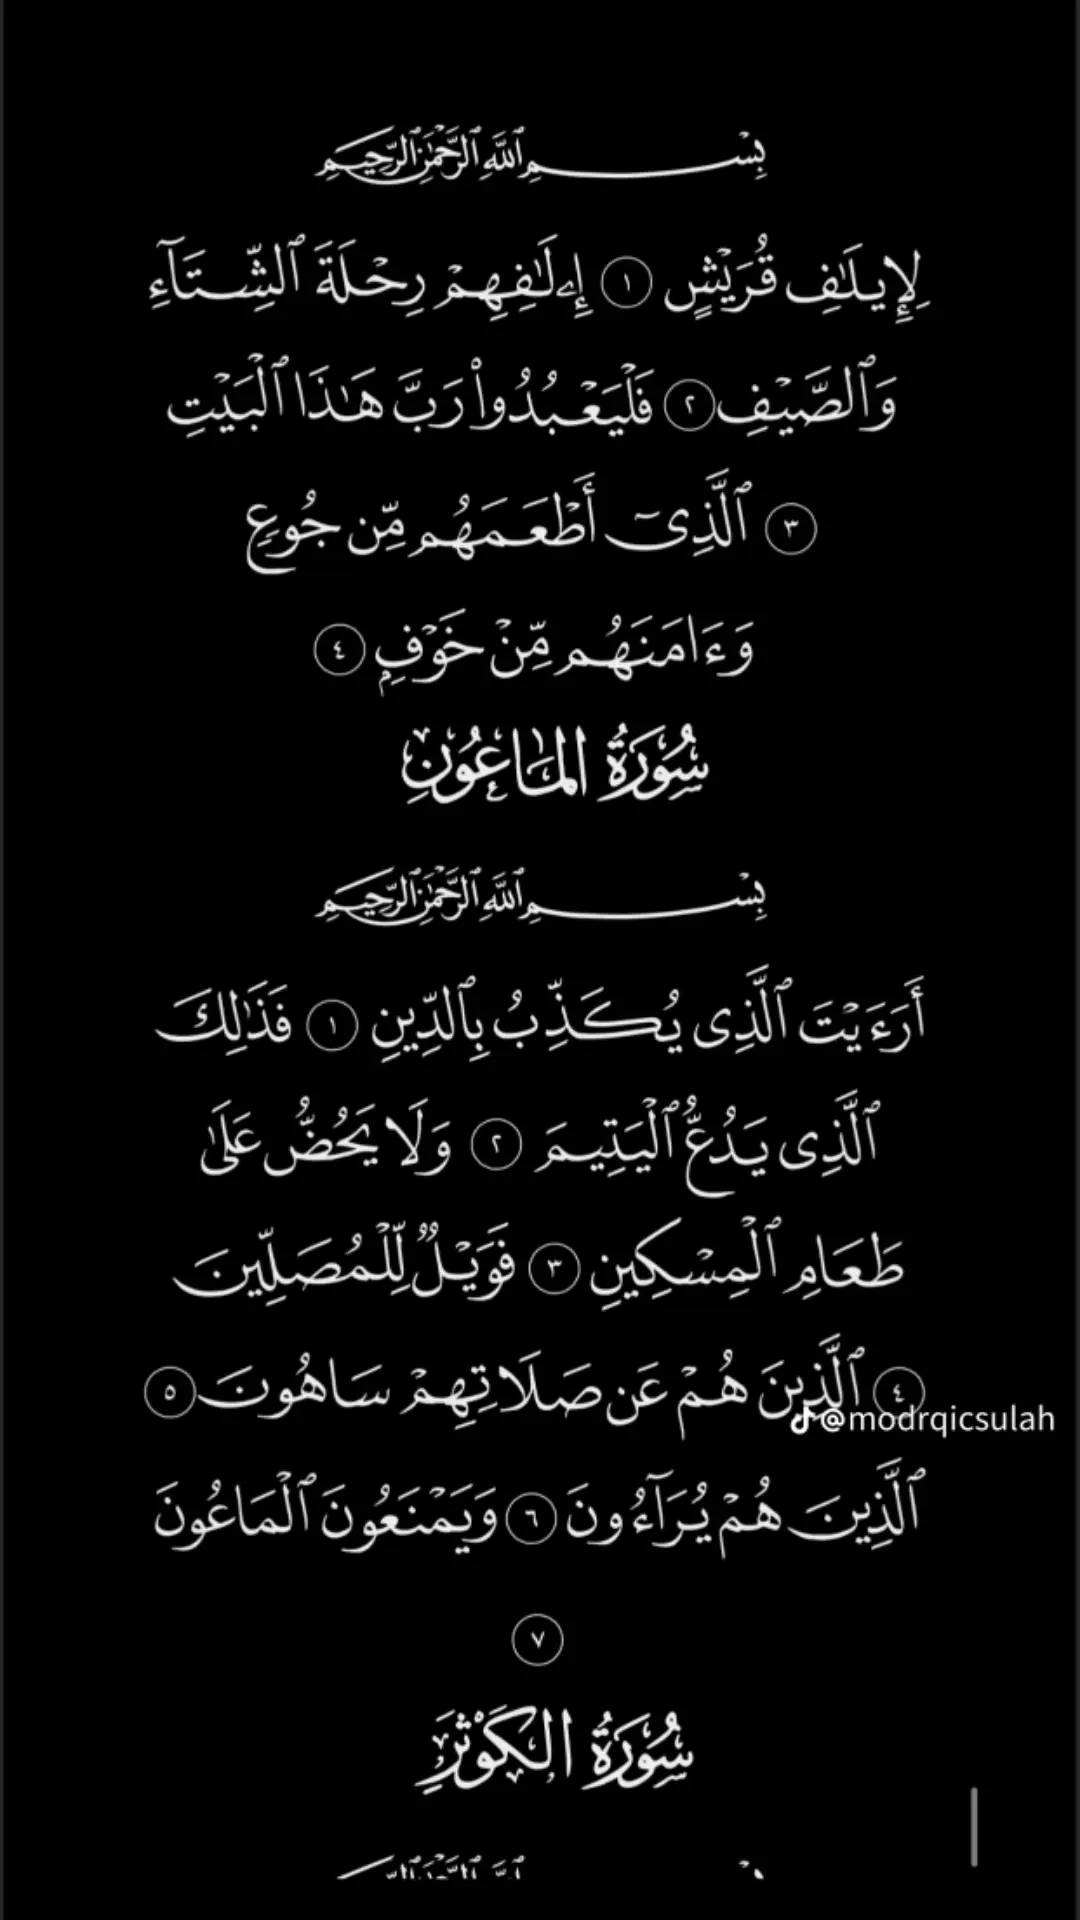 بِسْمِ ٱللَّهِ ٱلرَّحْمَٰنِ ٱلرَّحِيمِ
لِإِيلَٰفِ قُرَيْشٍ ١ إِۦلَٰفِهِمْ رِحْلَةَ ٱلشِّتَآءِ
وَٱلصَّيْفِ ٢ فَلْيَعْبُدُوا۟ رَبَّ هَٰذَا ٱلْبَيْتِ
٣ ٱلَّذِىٓ أَطْعَمَهُم مِّن جُوعٍ
وَءَامَنَهُم مِّنْ خَوْفٍۭ ٤
سُورَةُ المَاعُونِ
بِسْمِ ٱللَّهِ ٱلرَّحْمَٰنِ ٱلرَّحِيمِ
أَرَءَيْتَ ٱلَّذِى يُكَذِّبُ بِٱلدِّينِ ١ فَذَٰلِكَ
ٱلَّذِى يَدُعُّ ٱلْيَتِيمَ ٢ وَلَا يَحُضُّ عَلَىٰ
طَعَامِ ٱلْمِسْكِينِ ٣ فَوَيْلٌ لِّلْمُصَلِّينَ
٤ ٱلَّذِينَ هُمْ عَن صَلَاتِهِمْ سَاهُونَ ٥
@modrqicsulah
ٱلَّذِينَ هُمْ يُرَآءُونَ ٦ وَيَمْنَعُونَ ٱلْمَاعُونَ
٧
سُورَةُ الكَوْثَرِ